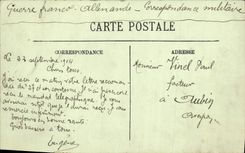 Guerre franco-Allemande - Correspondance militaire
CARTE POSTALE
CORRESPONDANCE
ADRESSE
Le 23 septembre 1914
Chers tous,
J'ai reçu ce matin votre lettre recomman
dée du et son contenu. J'ai
reçu le mandat télégraphique. Je vous
remercie infiniment.
Toujours en bonne santé.
Gros baisers à tous.
Eugène
Monsieur Vinel Paul
facteur
à Aubin
Aveyron